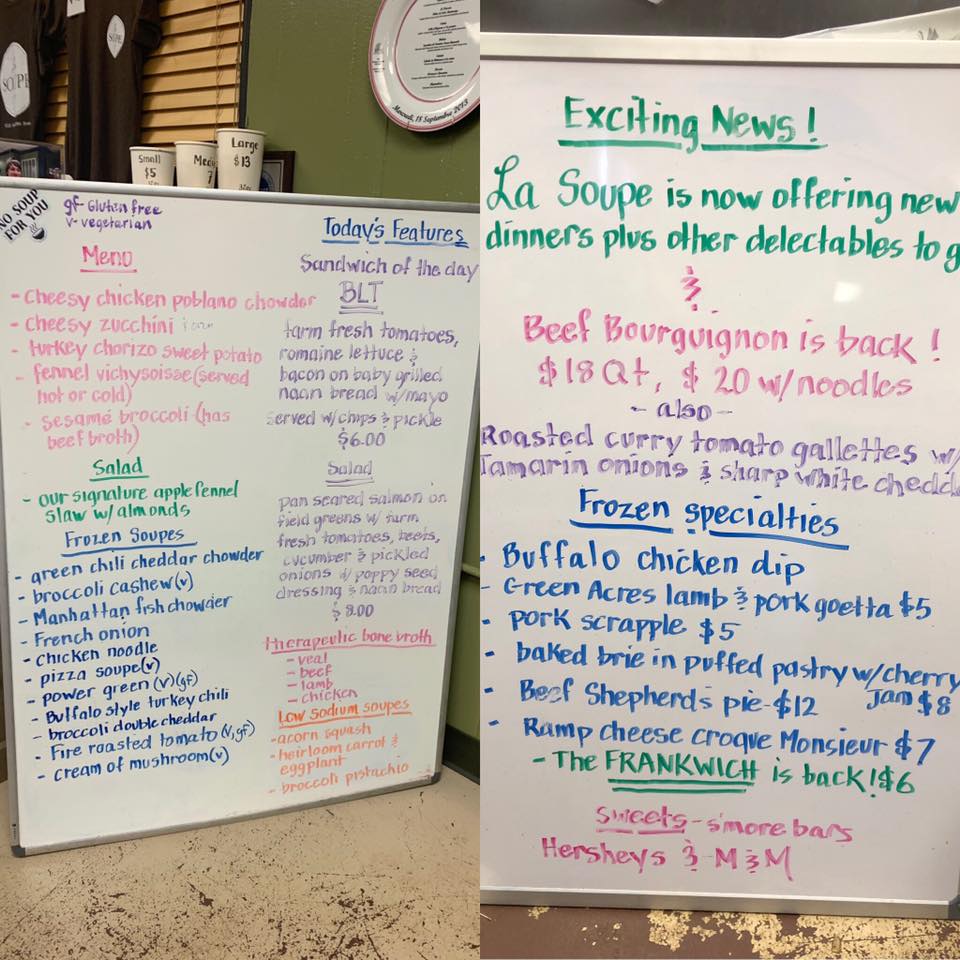 SOPE
SOUPE
Mercredi, 18 Septembre 2013
Small
$5
Med
7
Large
$13
NO SOUP
FOR YOU
gf-Gluten free
v-vegetarian
Menu
- Cheesy chicken poblano chowder
- Cheesy zucchini
- turkey chorizo sweet potato
- fennel vichysoisse (served
hot or cold)
- sesame broccoli (has
beef broth)
Salad
- our signature apple fennel
slaw w/ almonds
Frozen Soupes
- green chili cheddar chowder
- broccoli cashew (v)
- Manhattan fish chowder
- French onion
- chicken noodle
- pizza soupe (v)
- power green (v)(gf)
- Buffalo style turkey chili
- broccoli double cheddar
- Fire roasted tomato (v,gf)
- cream of mushroom (v)
Today's Features
Sandwich of the day
BLT
farm fresh tomatoes,
romaine lettuce &
bacon on baby grilled
naan bread w/mayo
served w/chips & pickle
$6.00
Salad
pan seared salmon on
field greens w/ farm
fresh tomatoes, beets,
cucumber & pickled
onions w/ poppy seed
dressing & naan bread
$8.00
Therapeutic bone broth
- veal
- beef
- lamb
- chicken
Low sodium soupes
- acorn squash
- heirloom carrot &
eggplant
- broccoli pistachio
Exciting News!
La Soupe is now offering new
dinners plus other delectables to g
&
Beef Bourguignon is back!
$18 Qt, $20 w/noodles
- also -
Roasted curry tomato gallettes w/
Tamarin onions & sharp white chedd
Frozen specialties
- Buffalo chicken dip
- Green Acres lamb & pork goetta $5
- pork scrapple $5
- baked brie in puffed pastry w/cherry
Jam $8
- Beef Shepherd's pie - $12
- Ramp cheese croque Monsieur $7
- The FRANKWICH is back! $6
Sweets - s'more bars
Hersheys & M&M